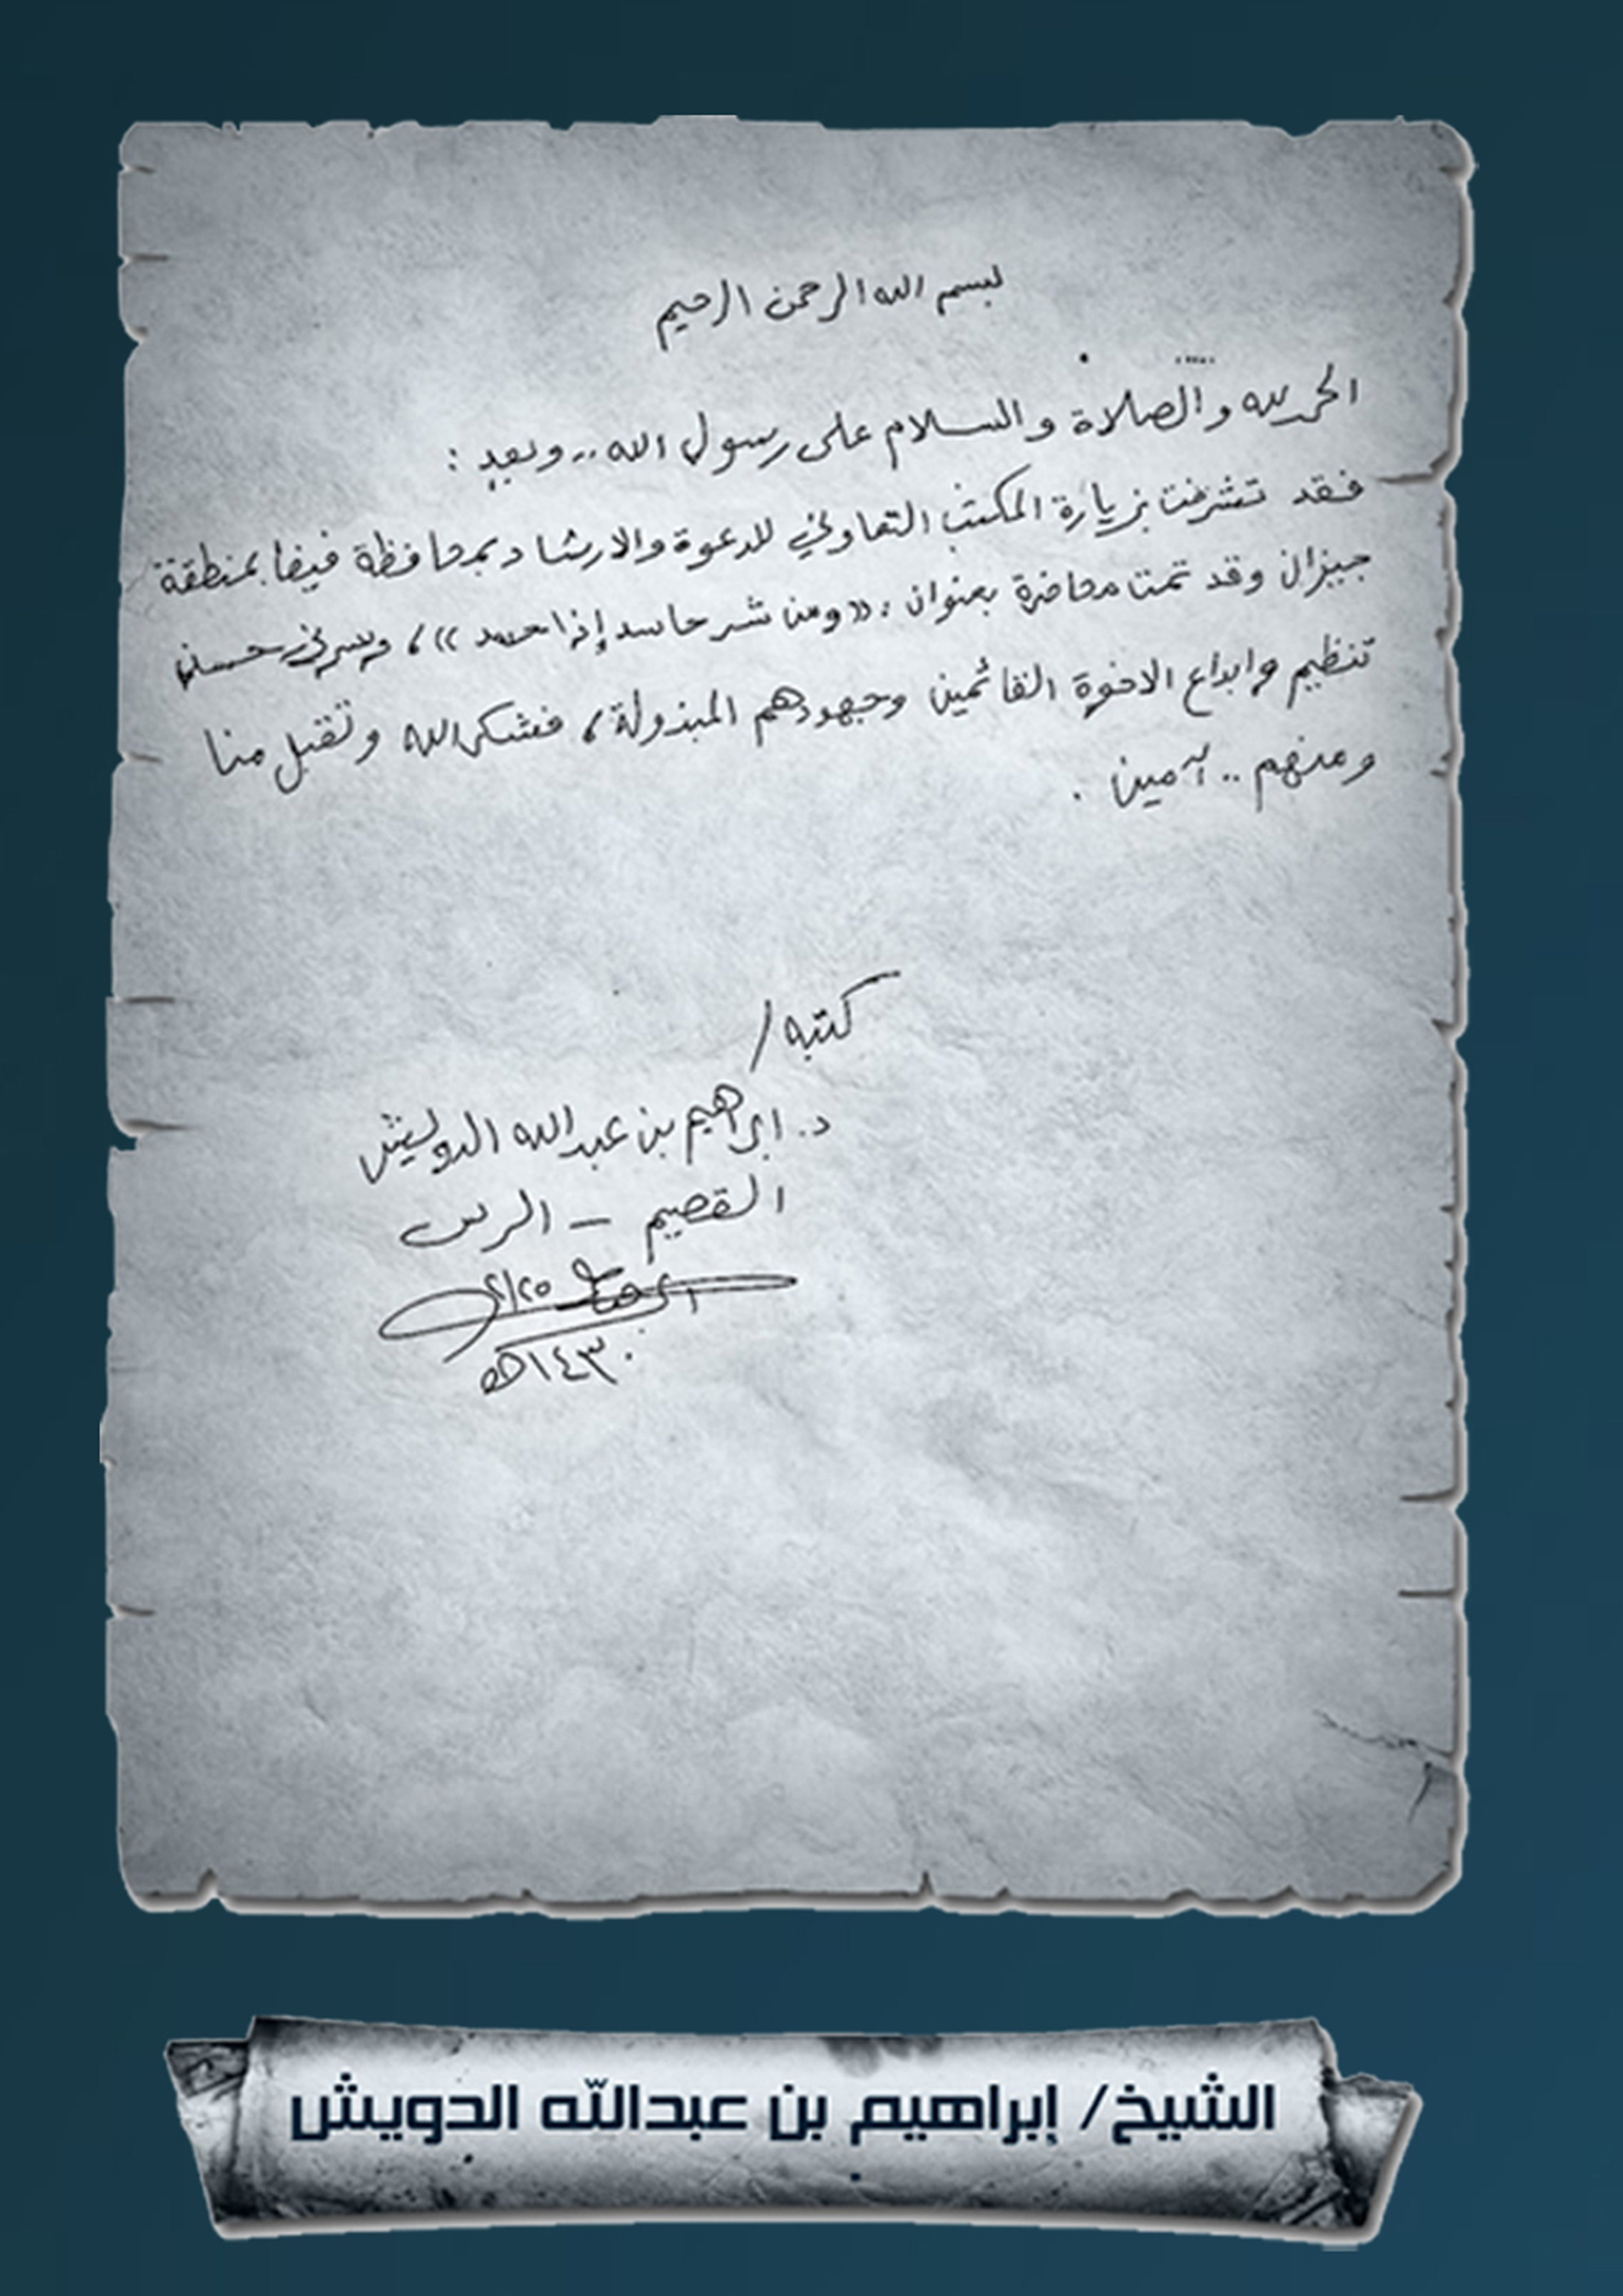 بسم الله الرحمن الرحيم
الحمد لله والصلاة والسلام على رسول الله .. وبعد :
فقد تشرفت بزيارة المكتب التعاوني للدعوة والارشاد بمحافظة فيفا بمنطقة
جيزان وقد تمت محاضرة بعنوان : «ومن شر حاسد إذا حسد» ، ويسرني حسن
تنظيم وابداع الاخوة القائمين وجهودهم المبذولة ، فشكر الله وتقبل منا
ومنهم .. آمين .
كتبه /
د. ابراهيم بن عبدالله الدويش
القصيم – الرس
١٤٣٠هـ
الشيخ/ إبراهيم بن عبدالله الدويش